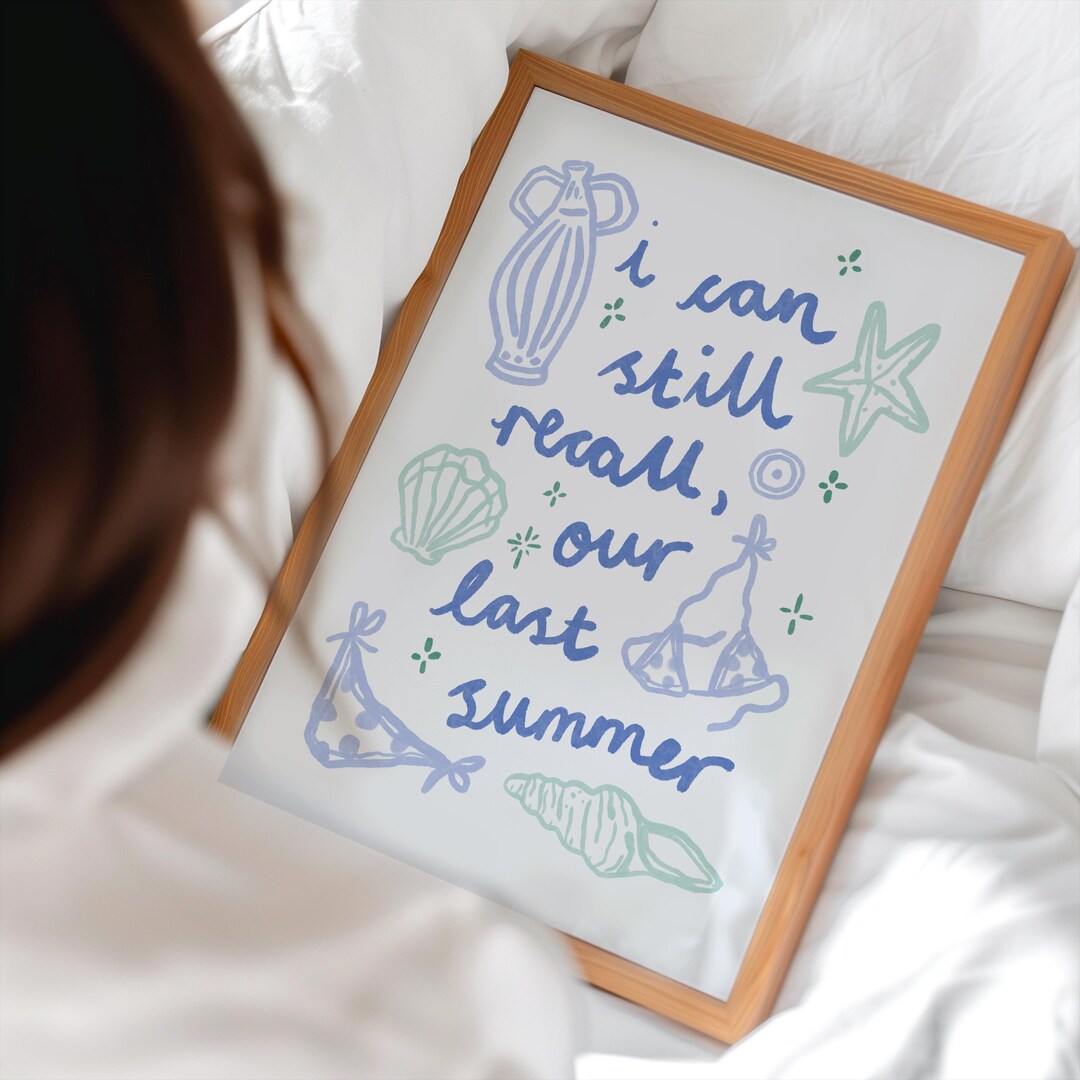 i can
still
recall,
our
last
summer